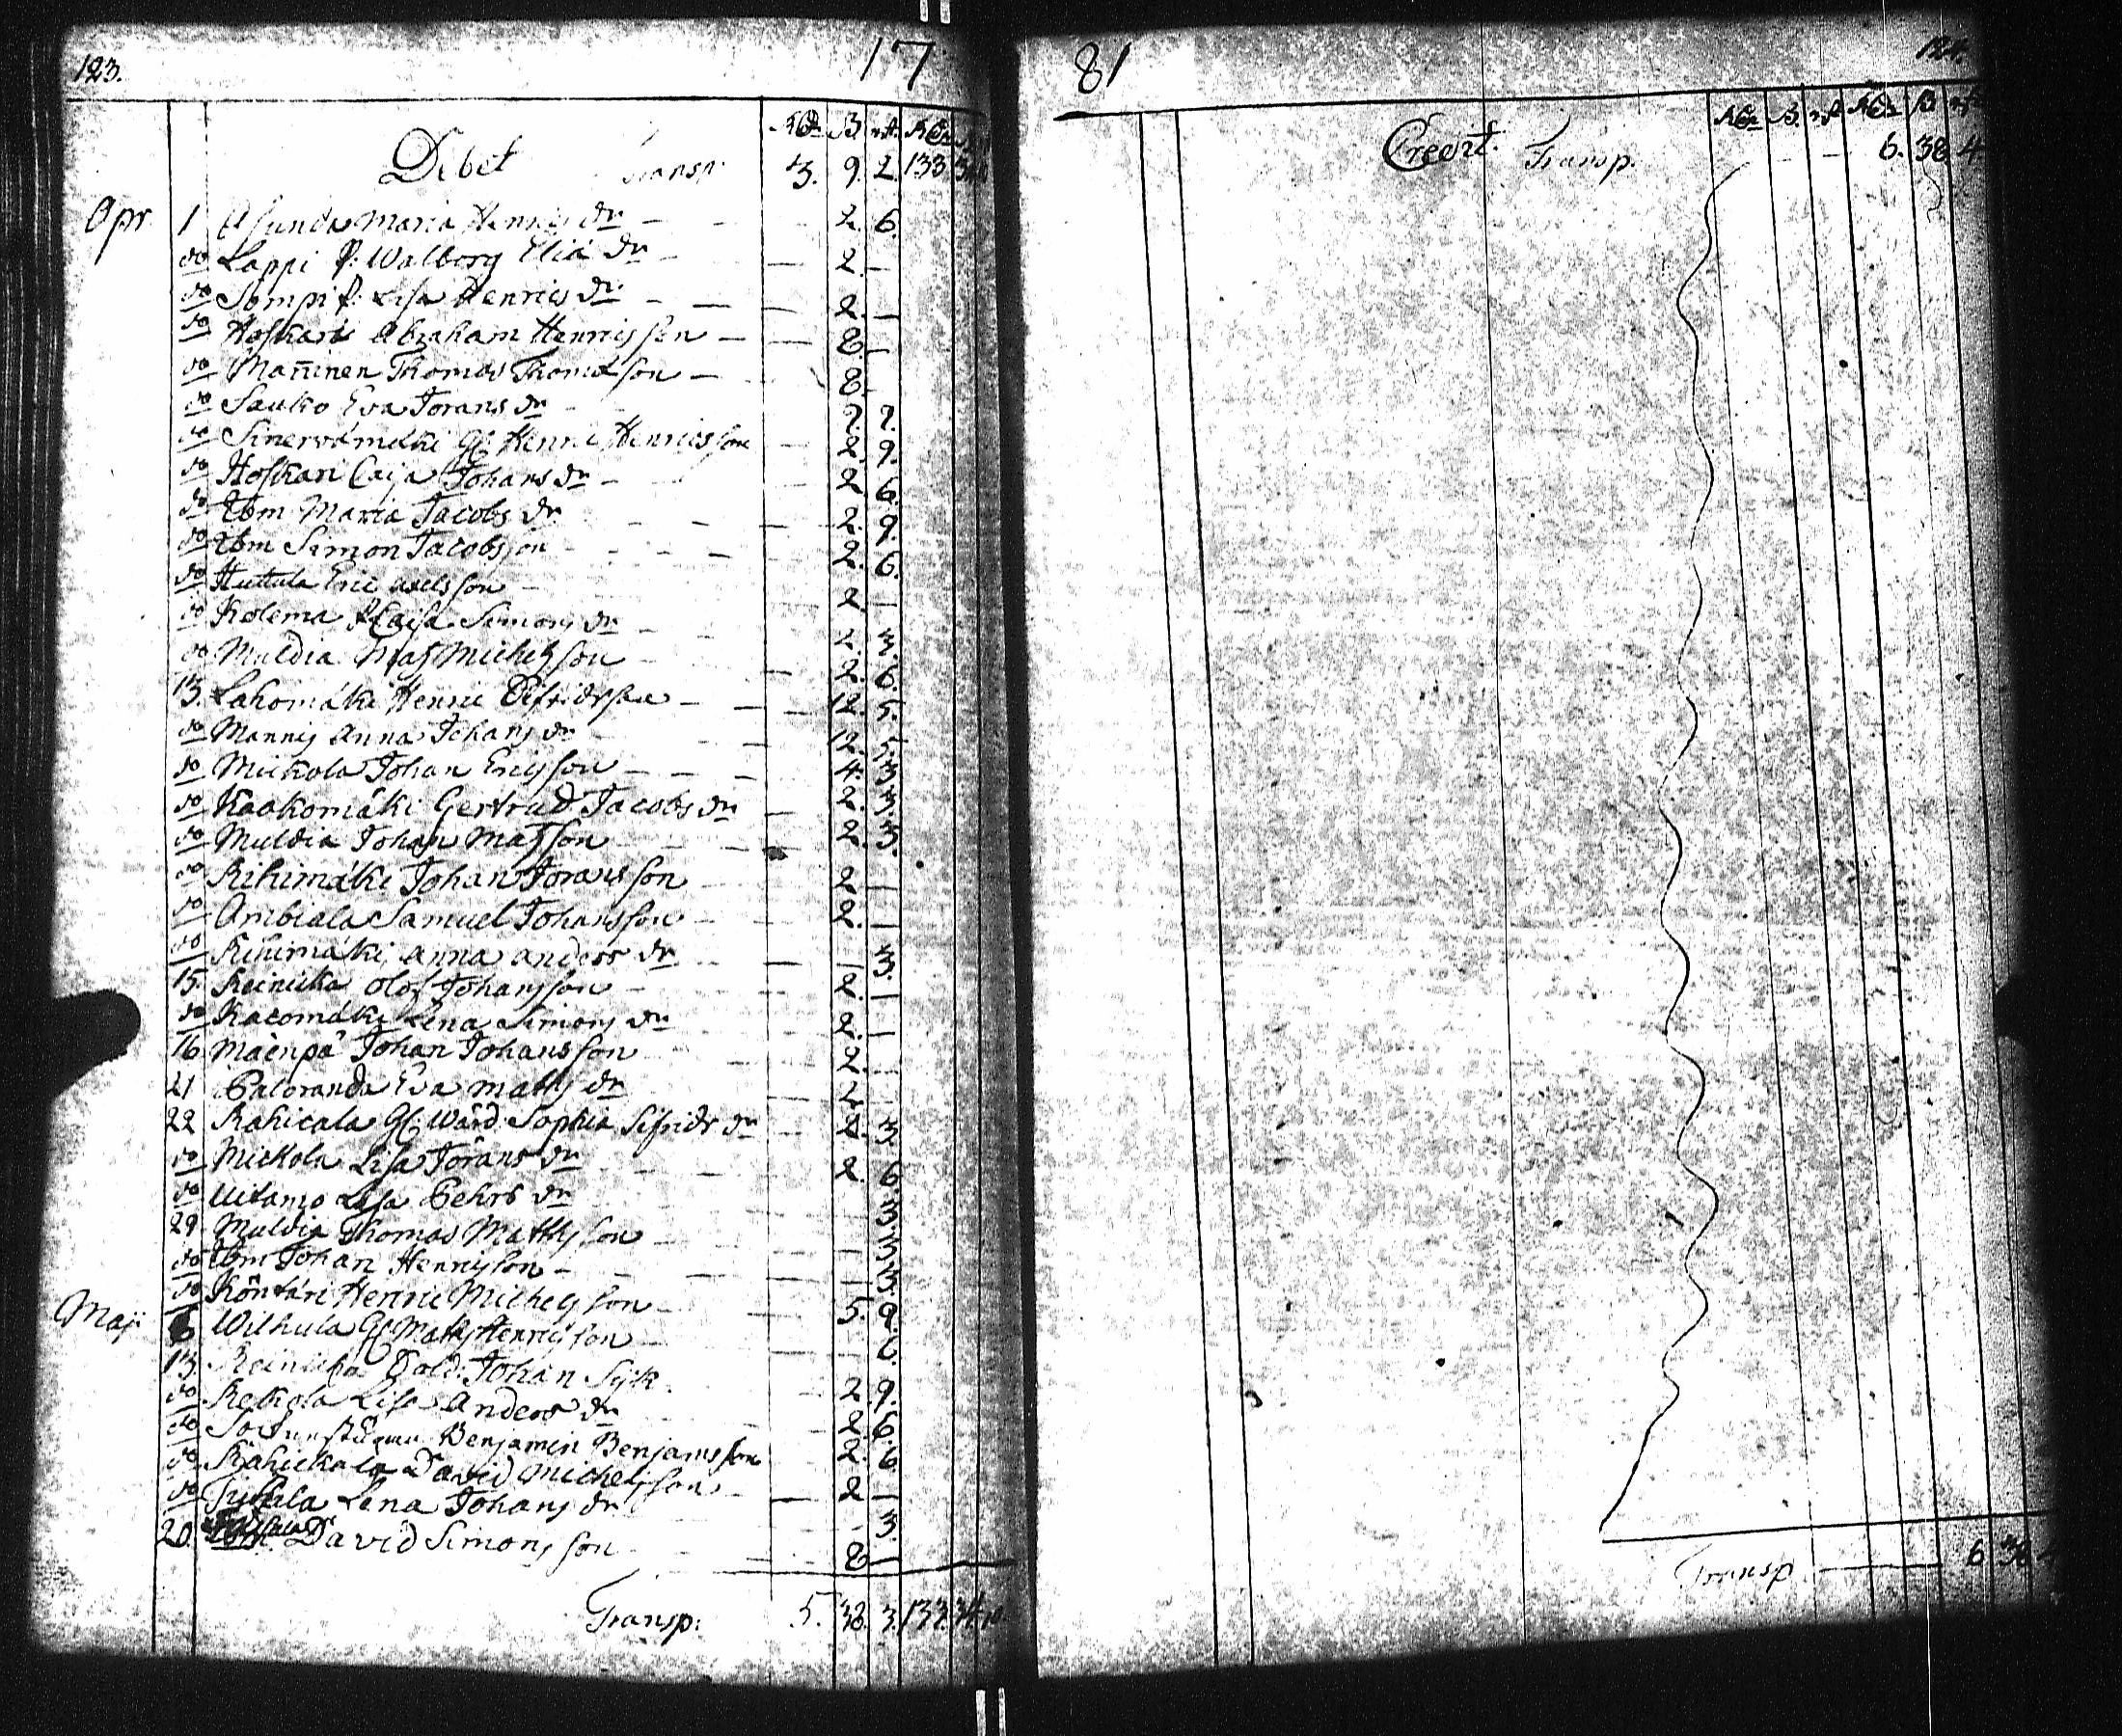 123.
17
Debet Transp: 3. 9. 2. 133
Apr. 1 Asunda Maria Henrics dr 2. 6.
do Lappi P: Walborg Eliæ dr 2. —
do Sompi P: Lisa Henrics dr 2. —
do Hoskari Abraham Henricsson 8. —
do Manninen Thomas Thomæson 8. —
do Sauko Eva Jörans dr 2. 2.
do Sinervämäki Gl. Henric Henricsson 2. 9.
do Hoskari Caisa Johans dr 2. 6.
do Ibm Maria Jacobs dr 2. 9.
do Ibm Simon Jacobsson 2. 6.
do Huttula Eric Axelsson 2. —
do Kolema P. Caisa Simons dr 2. 3.
do Muldia Mats Michelsson 2. 6.
13. Lahomäki Henric Sifridsson 12. 5.
do Mannis Anna Johans dr 12.
do Mickola Johan Ericsson 4. 3.
do Kaakomäki Gertrud Jacobs dr 2. 3.
do Muldia Johan Matsson 2. 3.
do Rihimäki Johan Joransson 2. —
do Ambiala Samuel Johansson 2. —
do Rihimäki Anna Anders dr — 3.
15. Reinicka Olof Johansson 2. —
do Kacomäki Lena Simons dr 2. —
16 Mäenpä Johan Johansson 2.
21 Paloranda Eva Matts dr 2.
22 Rahicala Gl: Wärd: Sophia Sifrids dr 4. 3.
do Mickola Lisa Jörans dr 2. 6.
do Uitamo Lisa Pehrs dr 3.
29. Muldia Thomas Mattsson — 3.
do Ibm Johan Henricsson — 3.
do Köntäri Henric Michelsson 5. 9.
Maji 6 Wilhula Gl Matts Henricsson 6.
13. Reinicka Sold: Johan Sijk 2. 9.
do Rekola Lisa Anders dr 2. 6.
do Benjamin Benjamsson 2. 6.
do Rahickala David Michelsson 2 —
do Lena Johans dr 3.
20. David Simonsson 8 —
Transp: 5. 38. 3. 133. 34. 10.
81
124.
Credit. Transp. 6. 38. 4
Transp 6 38 4